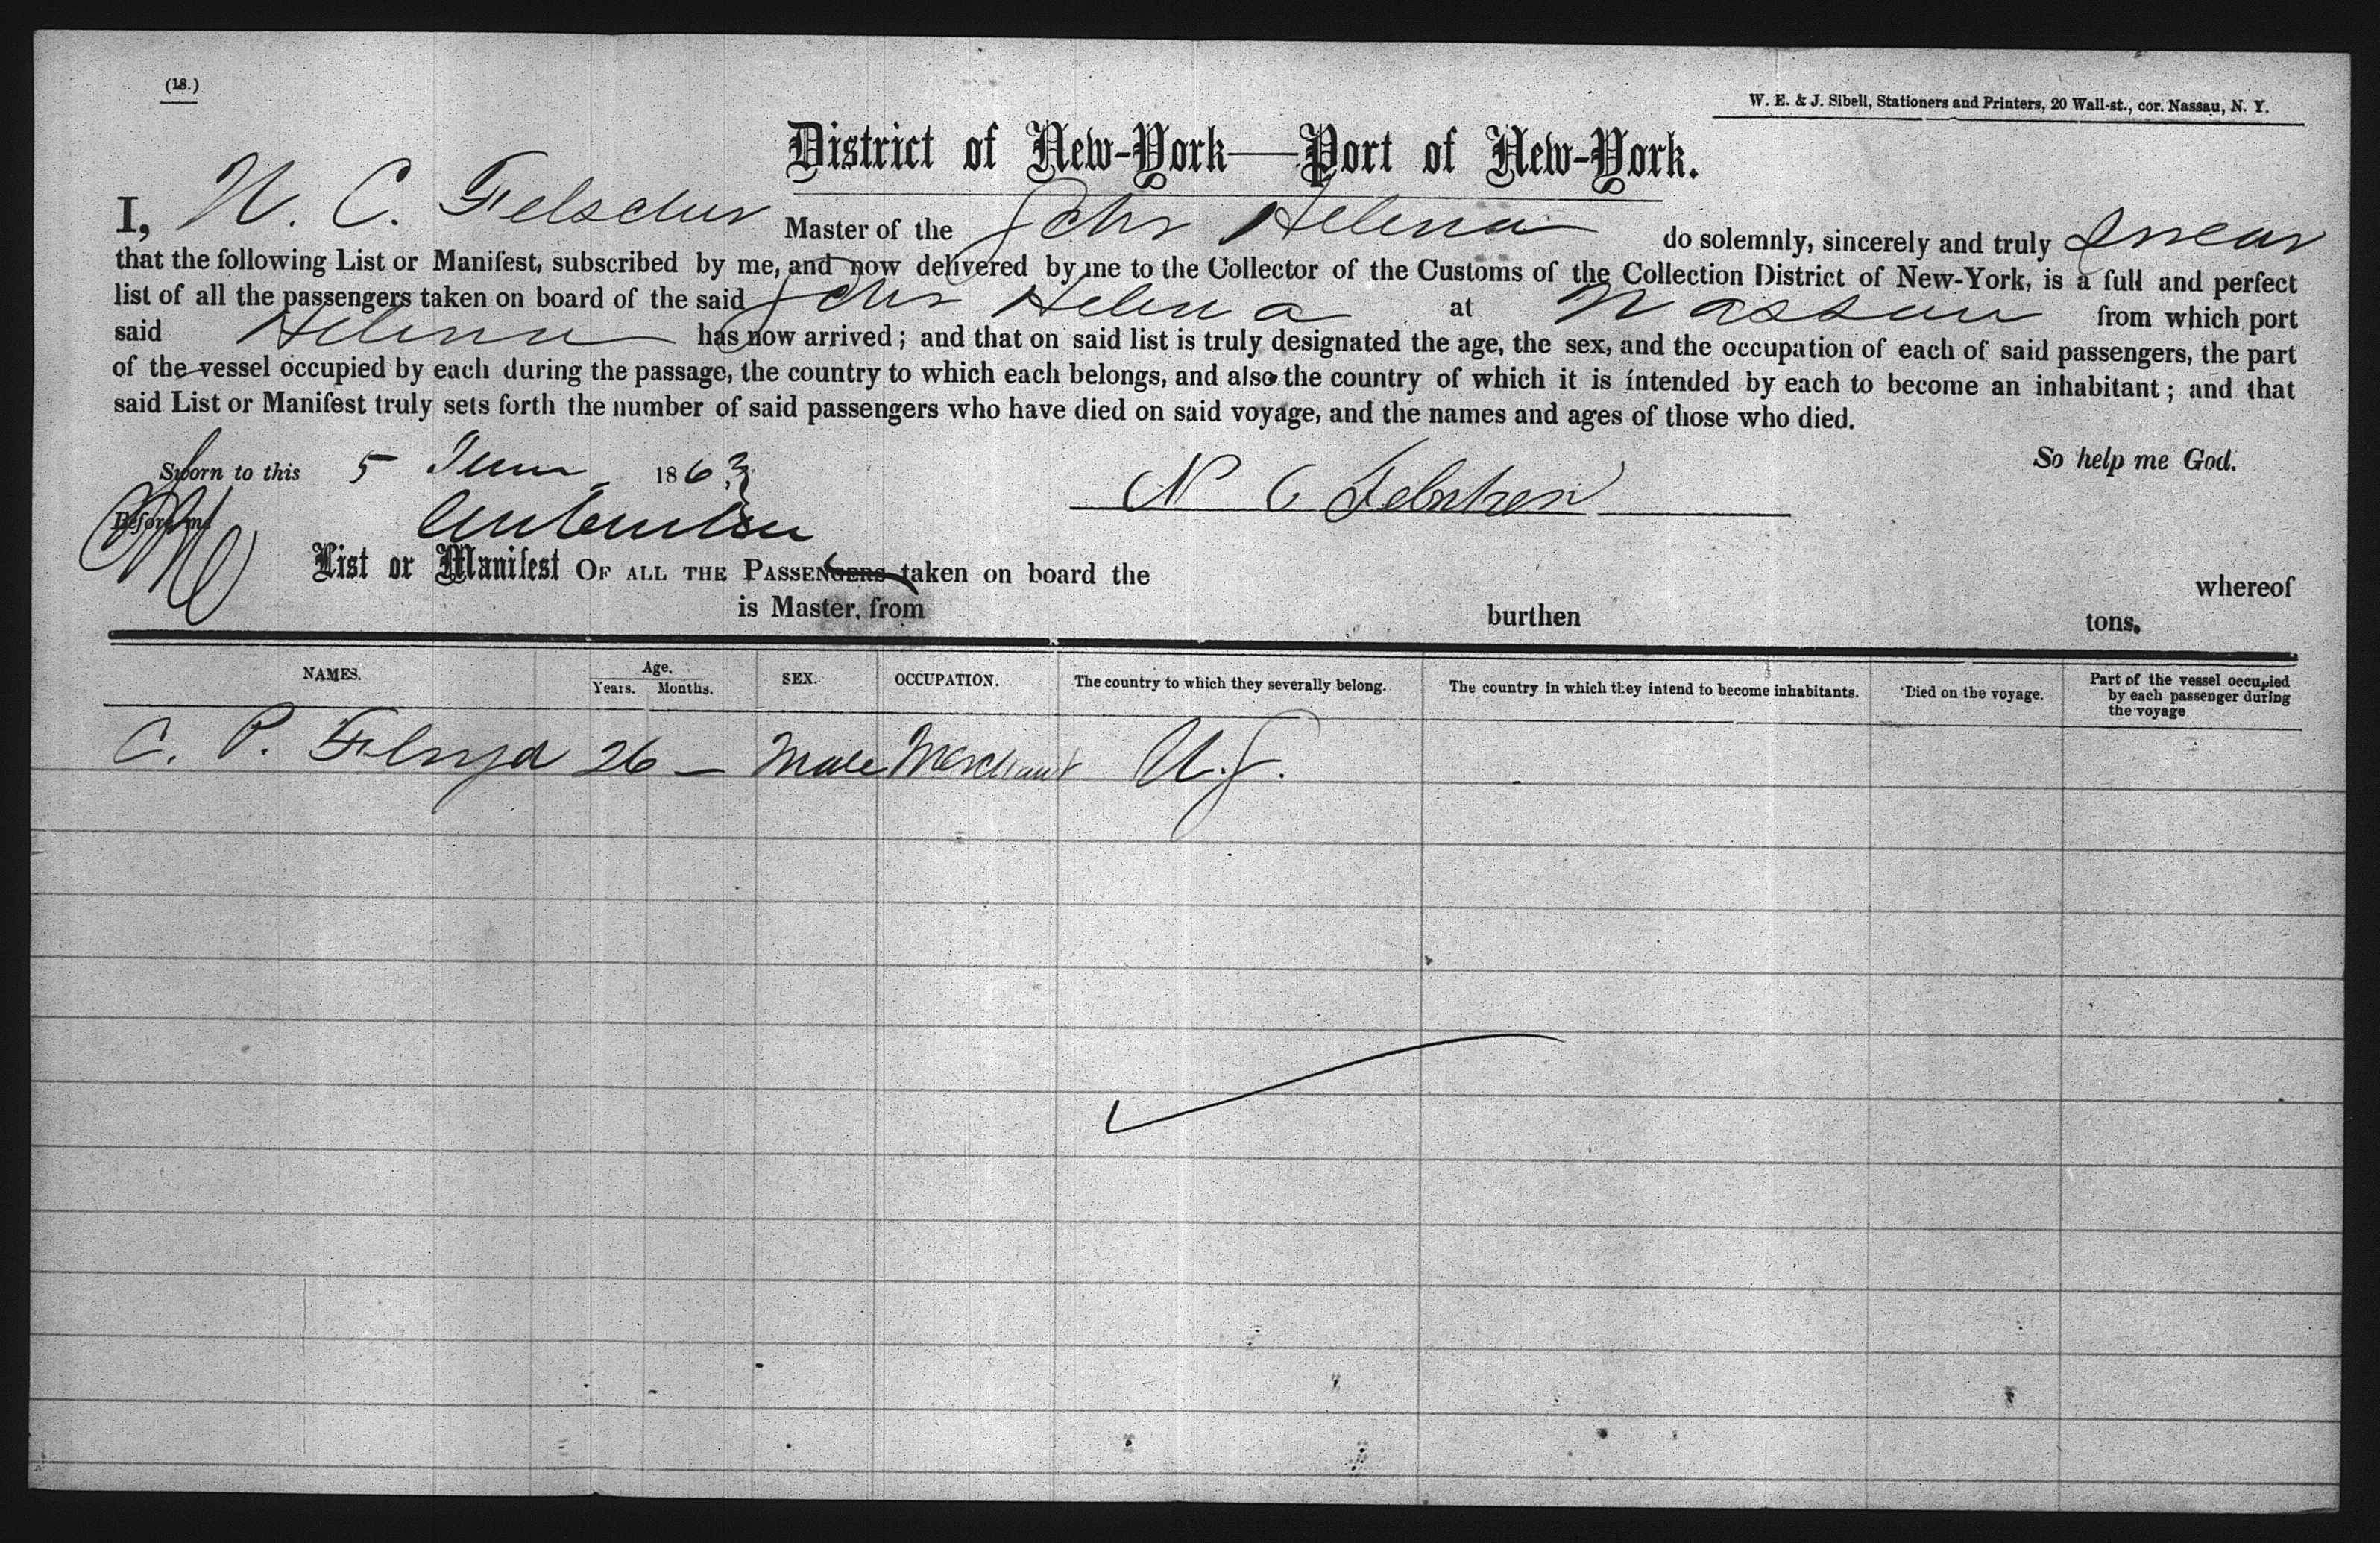 (18.)
W. E. & J. Sibell, Stationers and Printers, 20 Wall-st., cor. Nassau, N. Y.
District of New-York—Port of New-York.
I, N. C. Master of the Schr Helena do solemnly, sincerely and truly swear
that the following List or Manifest, subscribed by me, and now delivered by me to the Collector of the Customs of the Collection District of New-York, is a full and perfect
list of all the passengers taken on board of the said Schr Helena at Nassau from which port
said Helena has now arrived; and that on said list is truly designated the age, the sex, and the occupation of each of said passengers, the part
of the vessel occupied by each during the passage, the country to which each belongs, and also the country of which it is intended by each to become an inhabitant; and that
said List or Manifest truly sets forth the number of said passengers who have died on said voyage, and the names and ages of those who died.
So help me God.
Sworn to this 5 June 1863
N C
Before me
List or Manifest OF ALL THE PASSENGERS taken on board the whereof
is Master, from burthen tons,
NAMES. Age. Years. Months. SEX. OCCUPATION. The country to which they severally belong. The country in which they intend to become inhabitants. Died on the voyage. Part of the vessel occupied by each passenger during the voyage
C. P. 26 — Male Merchant U.S.